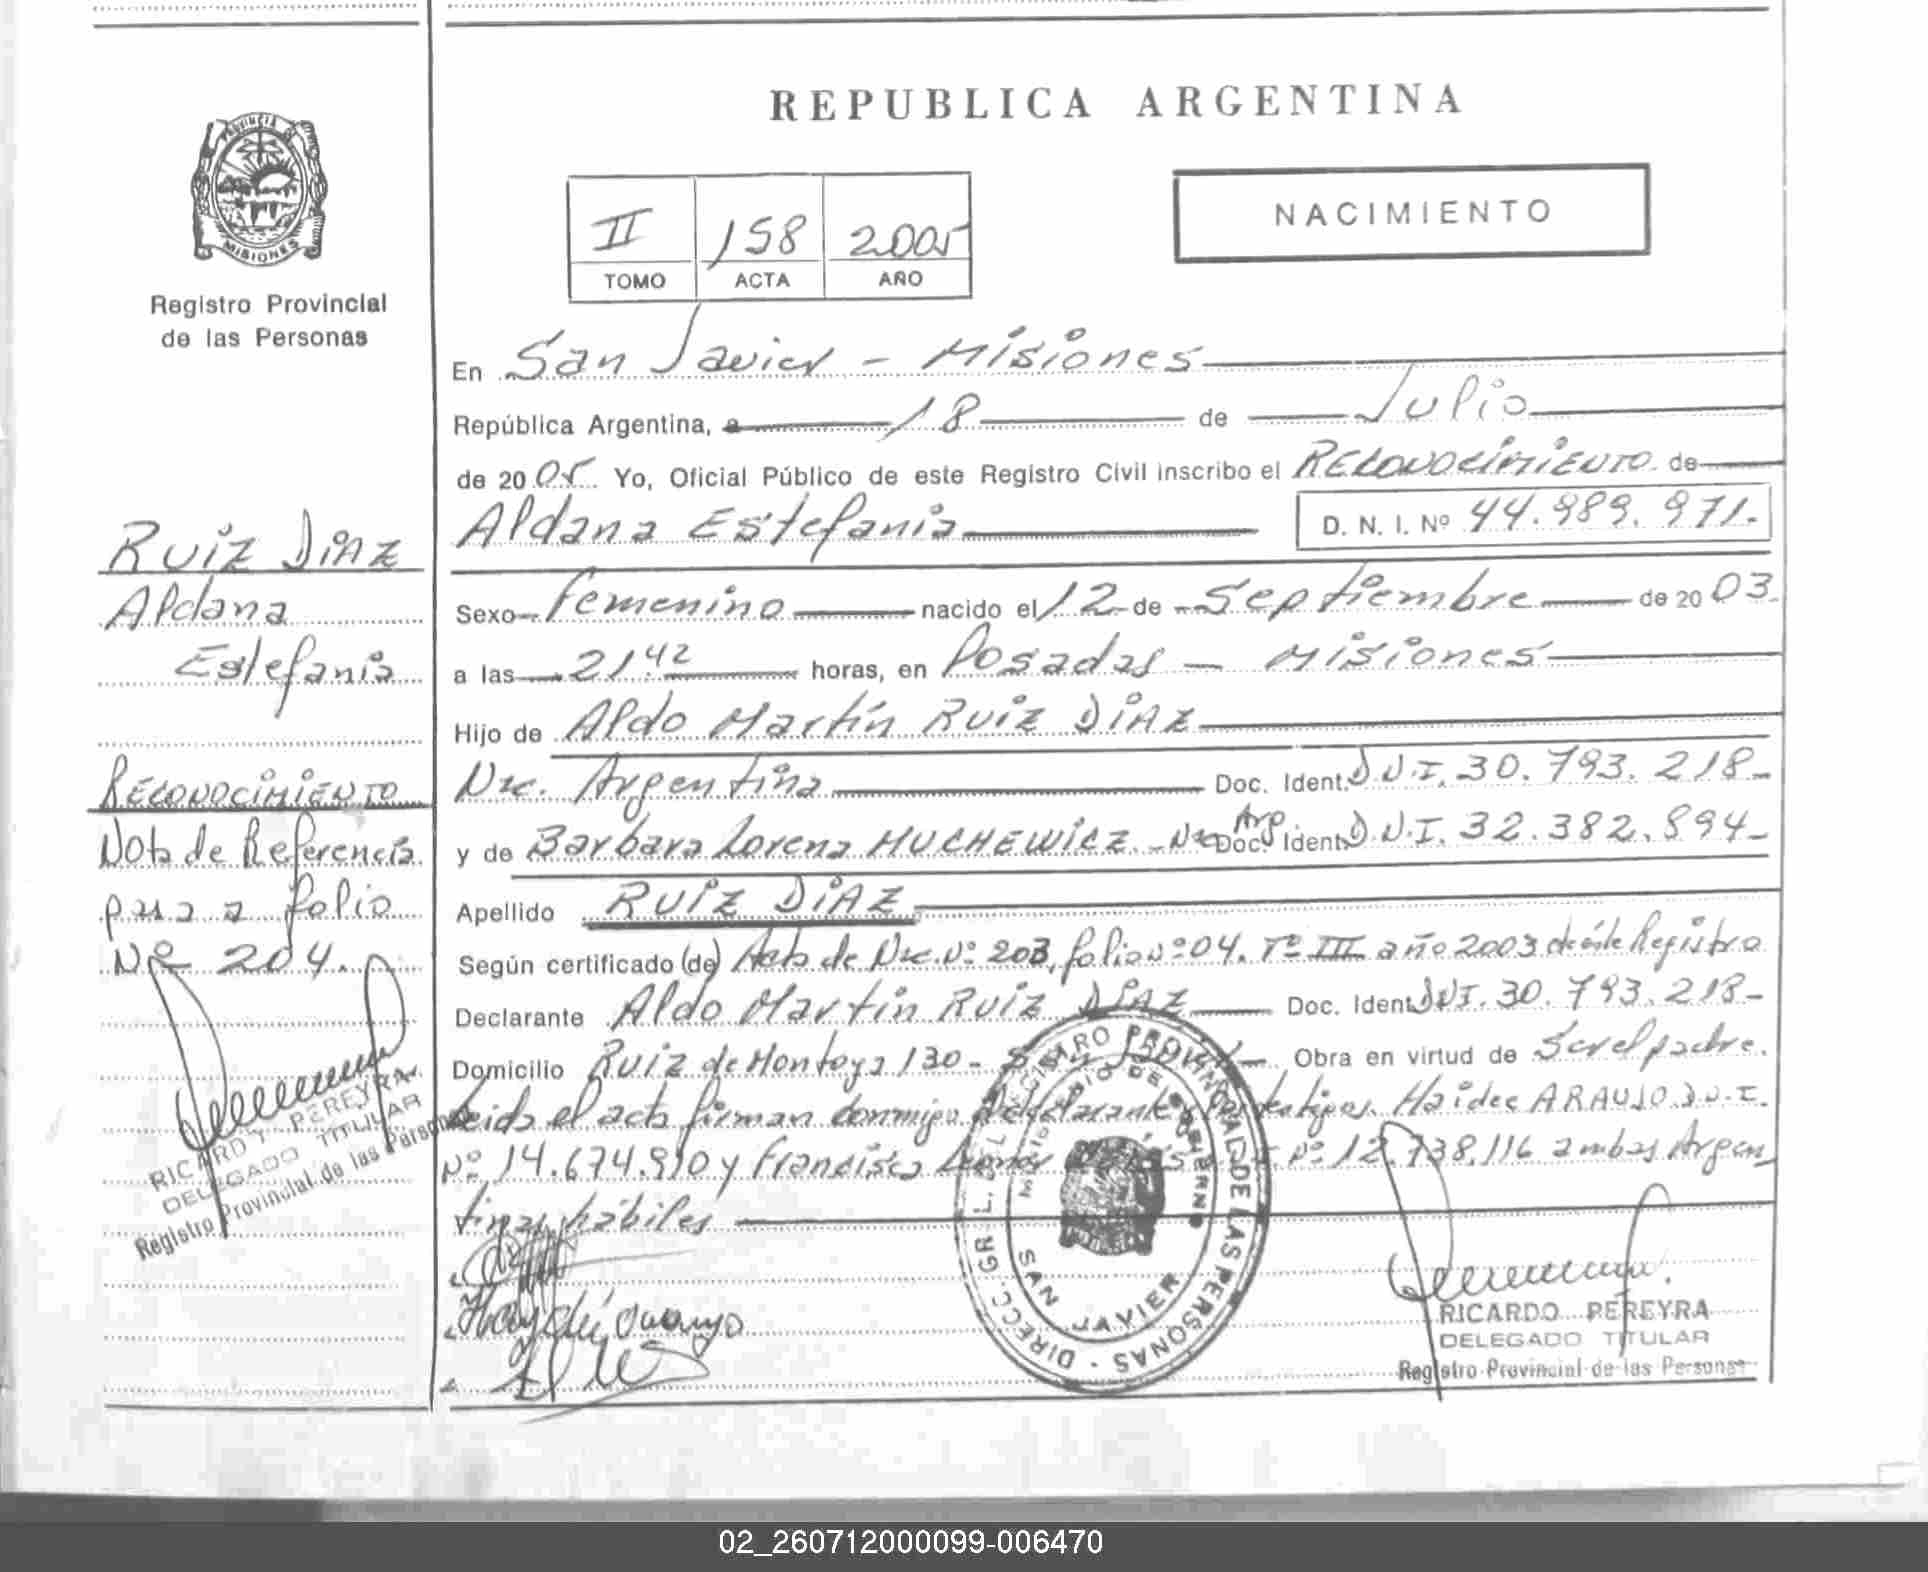 REPUBLICA ARGENTINA
PROVINCIA DE
MISIONES
Registro Provincial
de las Personas
II 158 2005
TOMO ACTA AÑO
NACIMIENTO
En San Javier - Misiones
República Argentina, a 18 de Julio
de 2005 Yo, Oficial Público de este Registro Civil inscribo el Reconocimiento de
Aldana Estefania D. N. I. Nº 44.989.971.
Sexo Femenino nacido el 12 de Septiembre de 2003
a las 21 42 horas, en Posadas - Misiones
Hijo de Aldo Martín Ruiz Diaz
Nac. Argentina Doc. Ident. D.N.I. 30.793.218-
y de Barbara Lorena MUCHEWICZ - Nac. Arg. Doc. Ident. D.N.I. 32.382.894-
Apellido RUIZ DIAZ
Según certificado (de) Acta de Nac. Nº 203, folio nº 04. Tº III año 2003 de éste Registro
Declarante Aldo Martin RUIZ DIAZ Doc. Ident. DNI. 30.793.218-
Domicilio Ruiz de Montoya 130- Obra en virtud de Ser el padre.
Leida el acta firman conmigo el declarante y los testigos. Haidee ARAUJO D.N.I.
Nº 14.674.910 y Francisco Nº 12.738.116 ambos Argen
tinas hábiles
RUIZ DIAZ
Aldana
Estefania
Reconocimiento
Nota de Referencia
pasa a folio
Nº 204.
RICARDO PEREYRA
DELEGADO TITULAR
Registro Provincial de las Personas
Haydeé Araujo
DIRECC. GRL. DEL REGISTRO PROVINCIAL DE LAS PERSONAS
MINISTERIO DE GOBIERNO
SAN JAVIER
RICARDO PEREYRA
DELEGADO TITULAR
Registro Provincial de las Personas
02_260712000099-006470